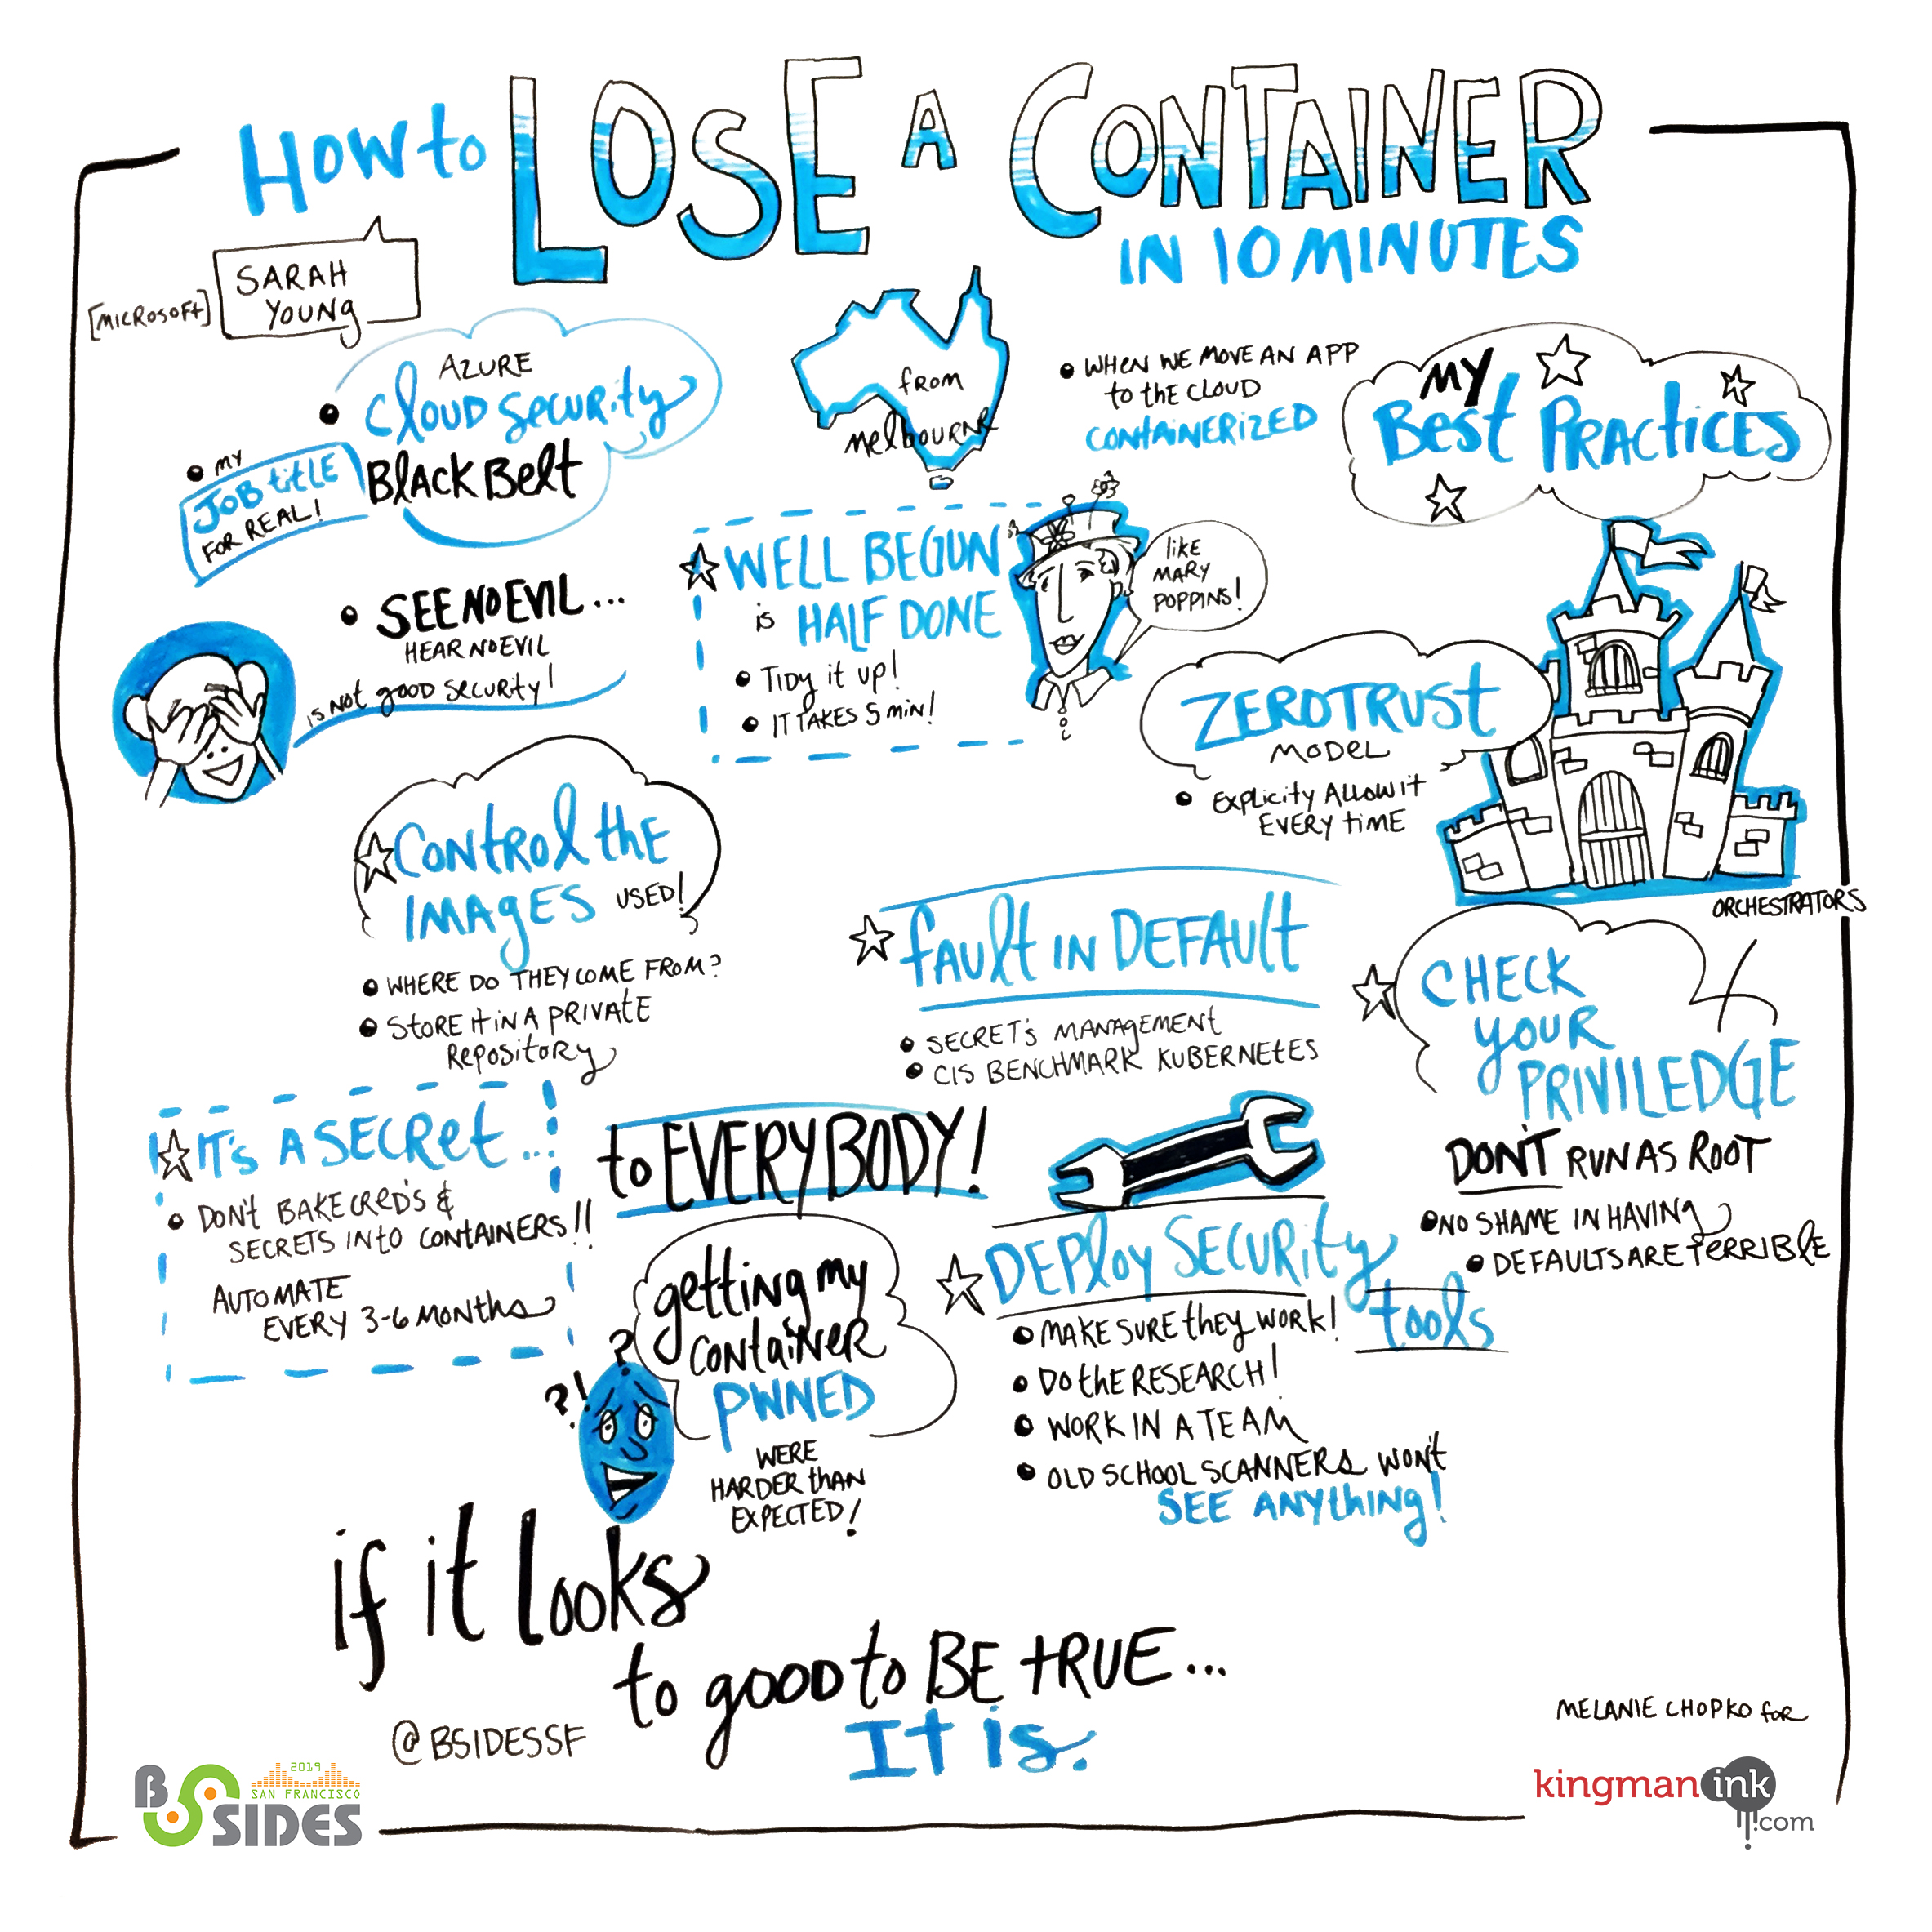 HOW to LOSE A CONTAINER
IN 10 MINUTES
[MICROSOFT]
SARAH
YOUNG
AZURE
CLOUD SECURITY
BLACK BELT
MY
JOB TITLE
FOR REAL!
from
MELBOURNE
WHEN WE MOVE AN APP
to the CLOUD
CONTAINERIZED
MY
BEST PRACTICES
SEE NO EVIL...
HEAR NO EVIL
IS NOT GOOD SECURITY!
WELL BEGUN
is HALF DONE
TIDY it UP!
IT TAKES 5 MIN!
like
MARY
POPPINS!
ZERO TRUST
MODEL
EXPLICITY ALLOW IT
EVERY TIME
ORCHESTRATORS
CONTROL the
IMAGES USED!
WHERE DO THEY COME FROM?
STORE it IN A PRIVATE
REPOSITORY
FAULT IN DEFAULT
SECRET'S MANAGEMENT
CIS BENCHMARK KUBERNETES
CHECK
YOUR
PRIVILEDGE
DON'T RUN AS ROOT
NO SHAME IN HAVING
DEFAULTS ARE TERRIBLE
IT'S A SECRET...
to EVERYBODY!
DON'T BAKE CRED'S &
SECRETS INTO CONTAINERS!!
AUTOMATE
EVERY 3-6 MONTHS
getting my
CONTAINER
PWNED
WERE
HARDER than
EXPECTED!
?
?!
DEPLOY SECURITY
tools
MAKE SURE they WORK!
DO the RESEARCH!
WORK IN A TEAM
OLD SCHOOL SCANNERS WON'T
SEE ANYTHING!
if it looks
to good to BE tRUE...
It is.
@BSIDESSF
MELANIE CHOPKO for
2019
SAN FRANCISCO
BSIDES
kingman ink
.com